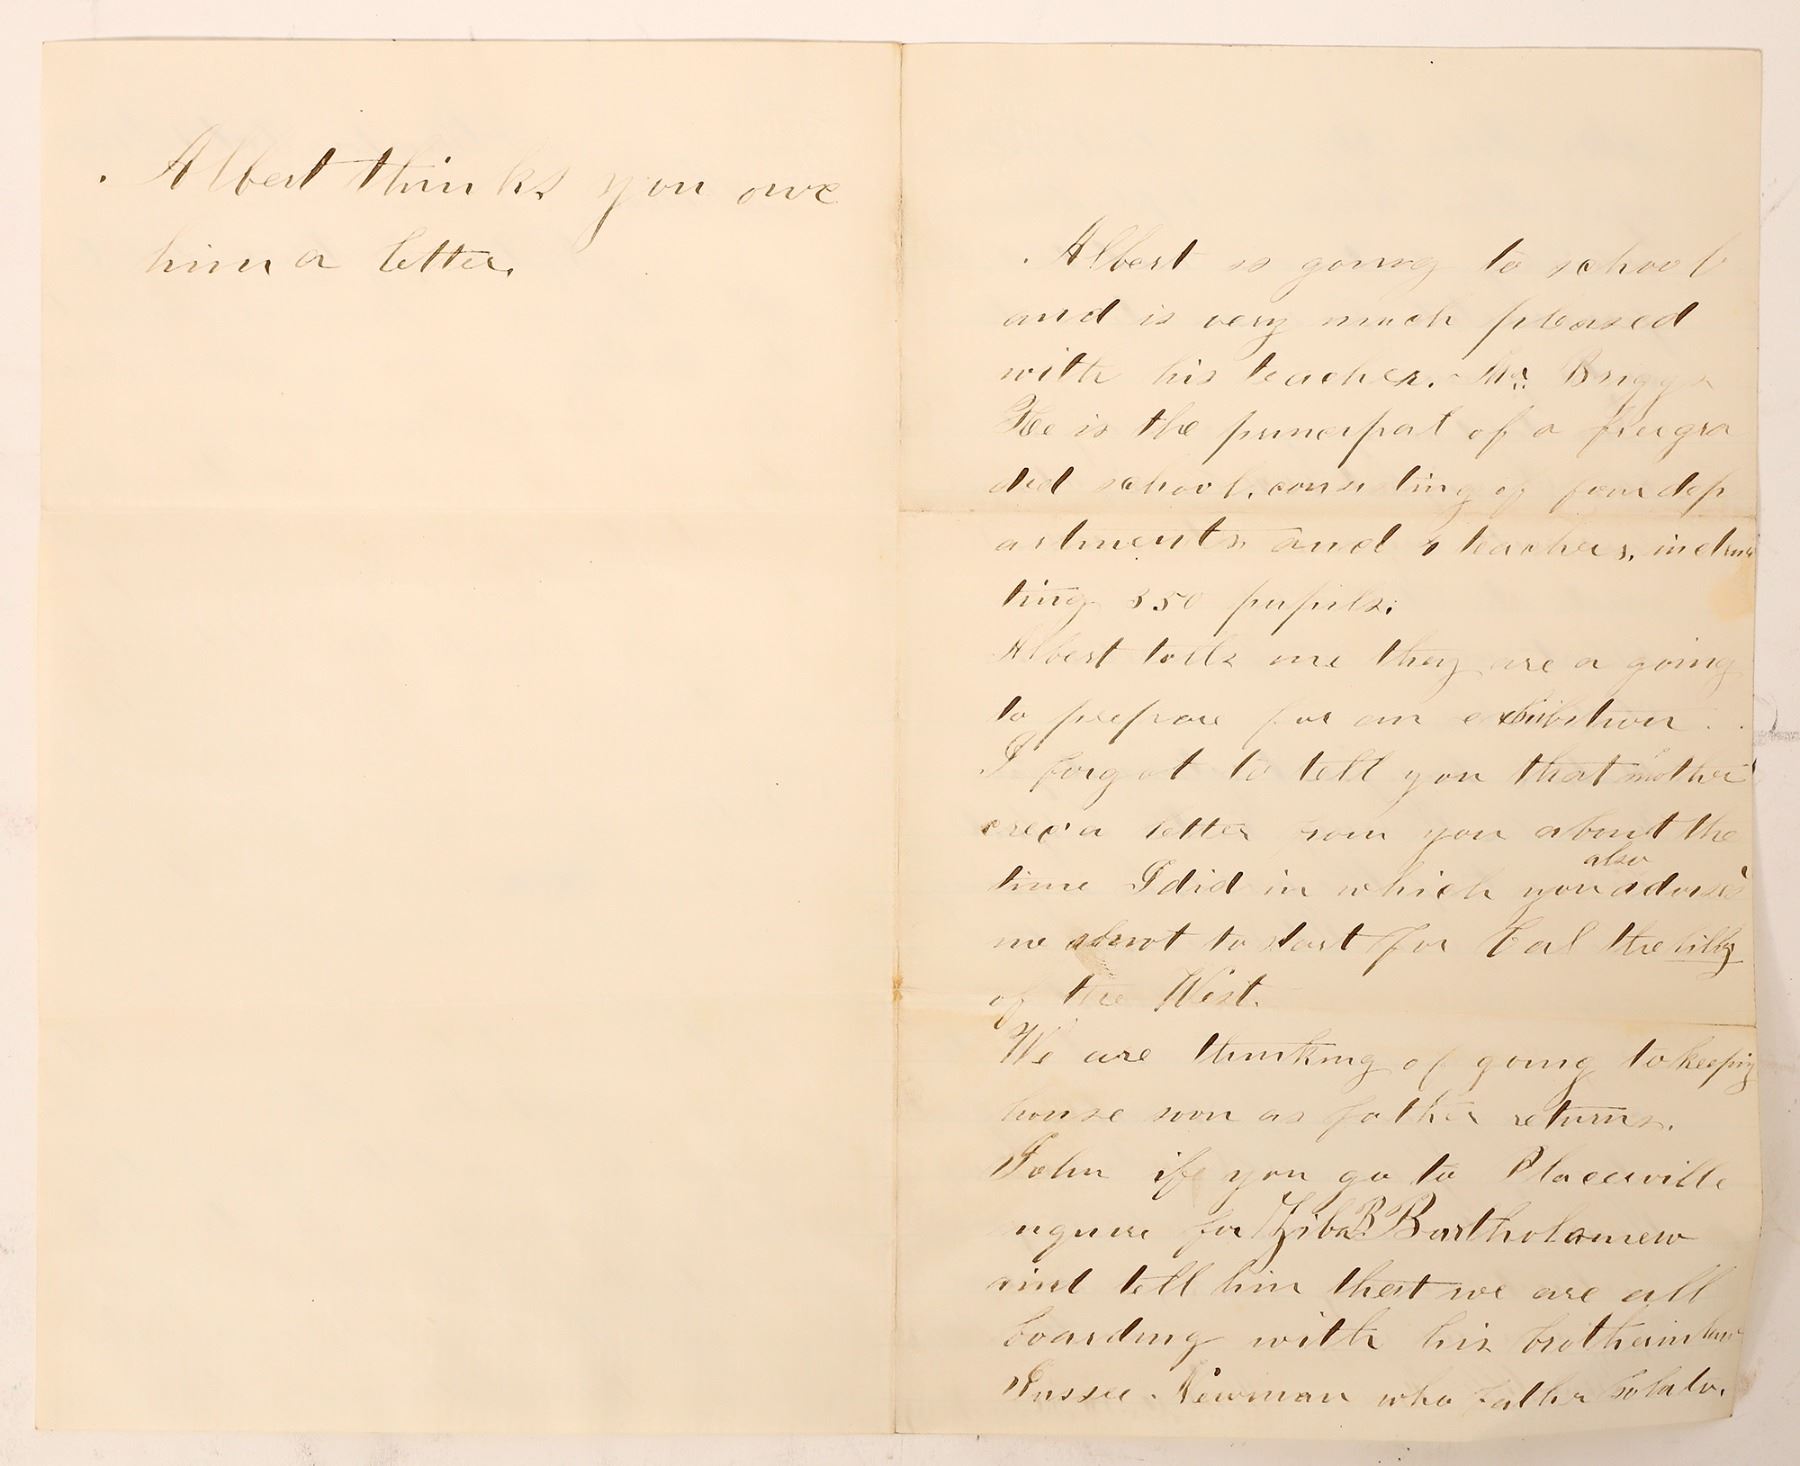 Albert thinks you owe
him a letter.
Albert is going to school
and is very much pleased
with his teacher. Mr. Briggs
He is the principal of a free gra
ded school, consisting of four dep
artments and teachers, instruc
ting 350 pupils.
Albert tells me they are a going
to prepare for an exhibition.
I forgot to tell you that mother
a letter from you about the
also
time I did in which you advise
me not to start for Cal the
of the West.
We are thinking of going to keeping
house soon as father returns.
John if you go to Placerville
nquire for Ziba B. Bartholomew
and tell him that we are all
boarding with his brother in law
Newman who father